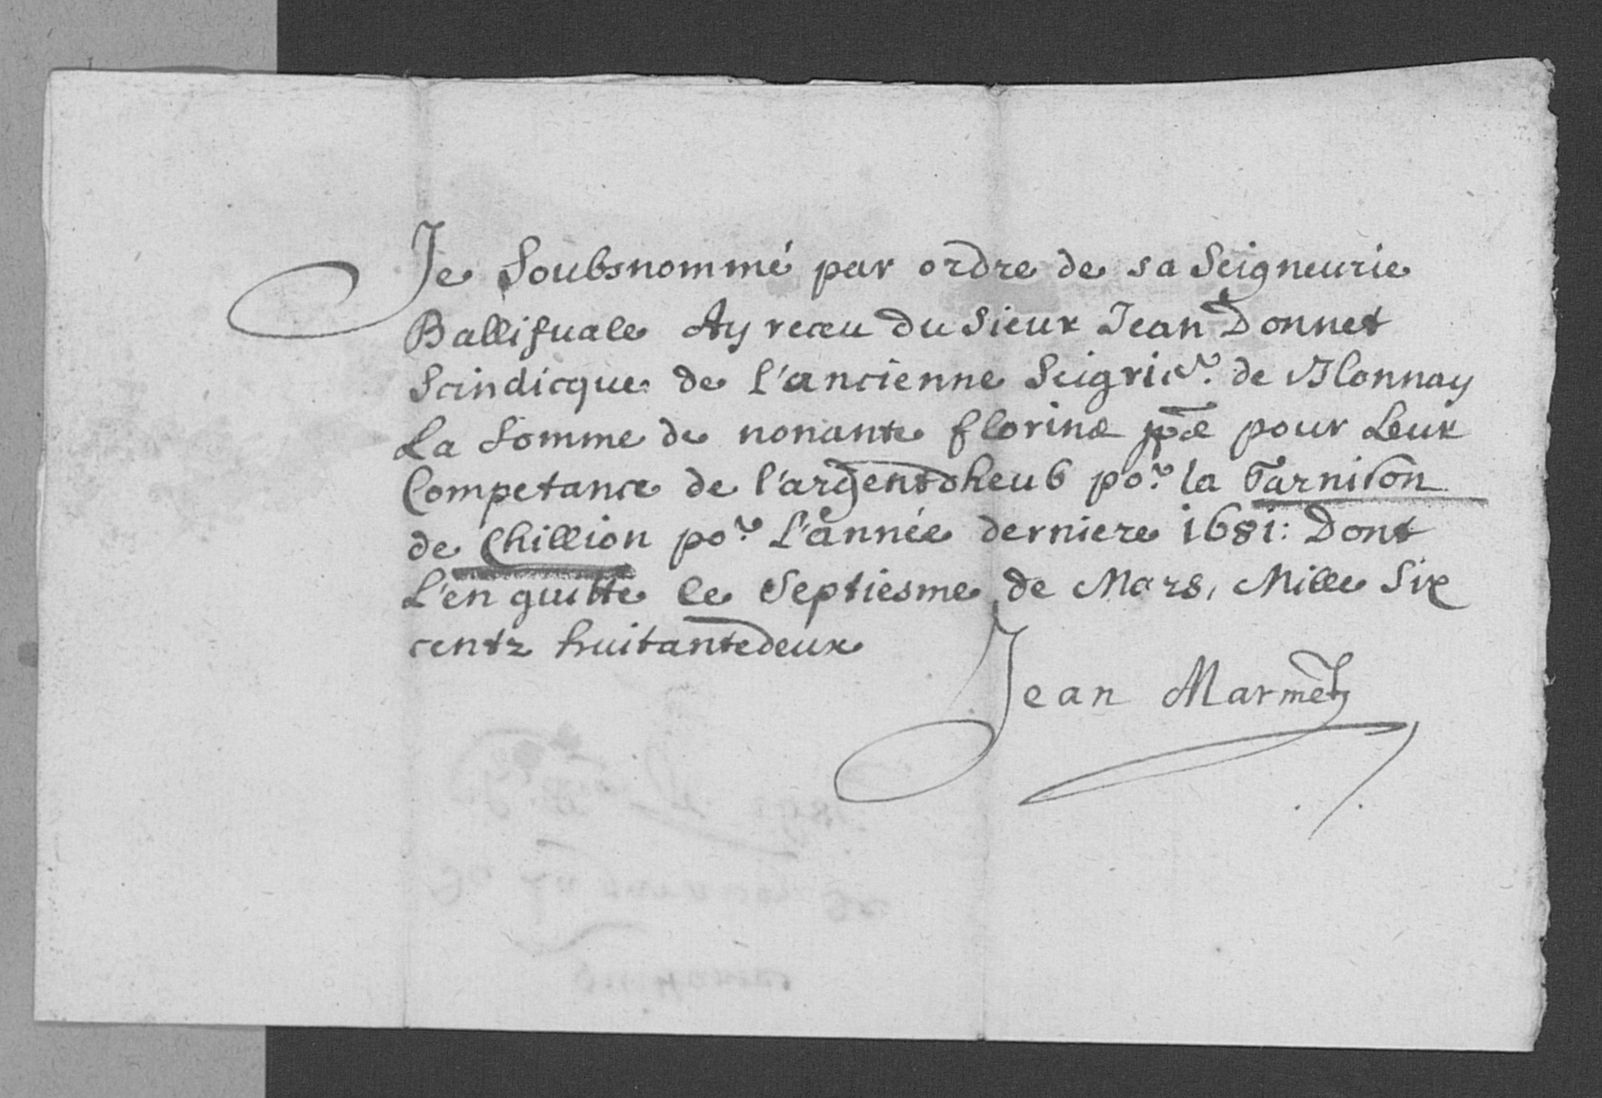 Je Soubsnommé par ordre de sa Seigneurie
Ballifuale Ay receu du Sieur Jean Donnet
Scindicque de l'ancienne Seigrie.r de Blonnay
La Somme de nonante florins pour Leur
Competance de l'argent po.r la Garnison
de Chillion po.r L'année derniere 1681: Dont
L'en quitte le Septiesme de Mars, Mille Six
centz huitantedeux
Jean Marmet